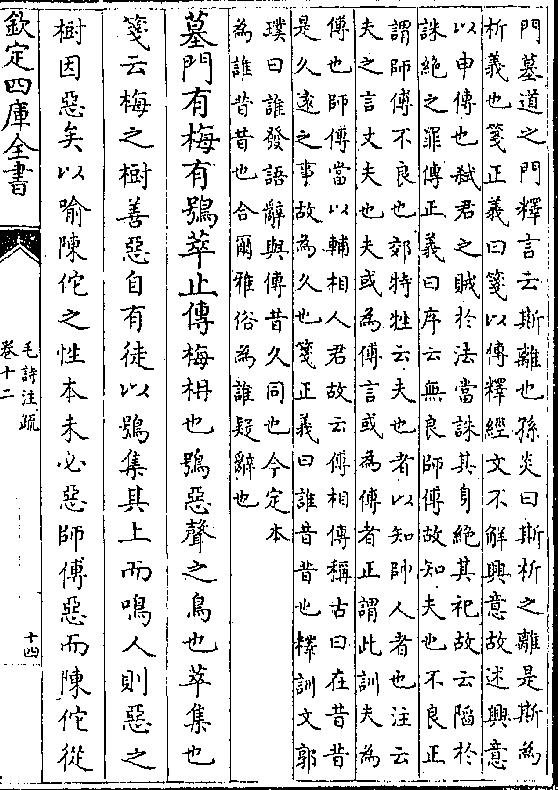 門墓道之門釋言云斯離也孫炎曰斯析之離是斯為
析義也箋正義曰箋以傳釋經文不解興意故述興意
以申傳也弑君之賊於法當誅其身絶其祀故云陷於
誅絶之罪傳正義曰序云無良師傅故知夫也不良正
謂師傅不良也郊特牲云夫也者以知帥人者也注云
夫之言丈夫也夫或為傅言或為傅者正謂此訓夫為
傅也師傅當以輔相人君故云傅相傳稱古曰在昔昔
是久遠之事故為久也箋正義曰誰昔昔也釋訓文郭
璞曰誰發語辭與傳昔久同也今定本
為誰昔昔也合爾雅俗為誰疑辭也
墓門有梅有鴞萃止傳梅枏也鴞惡聲之鳥也萃集也
箋云梅之樹善惡自有徒以鴞集其上而鳴人則惡之
樹因惡矣以喻陳佗之性本未必惡師傅惡而陳佗從
欽定四庫全書
毛詩注疏
卷十二
十四